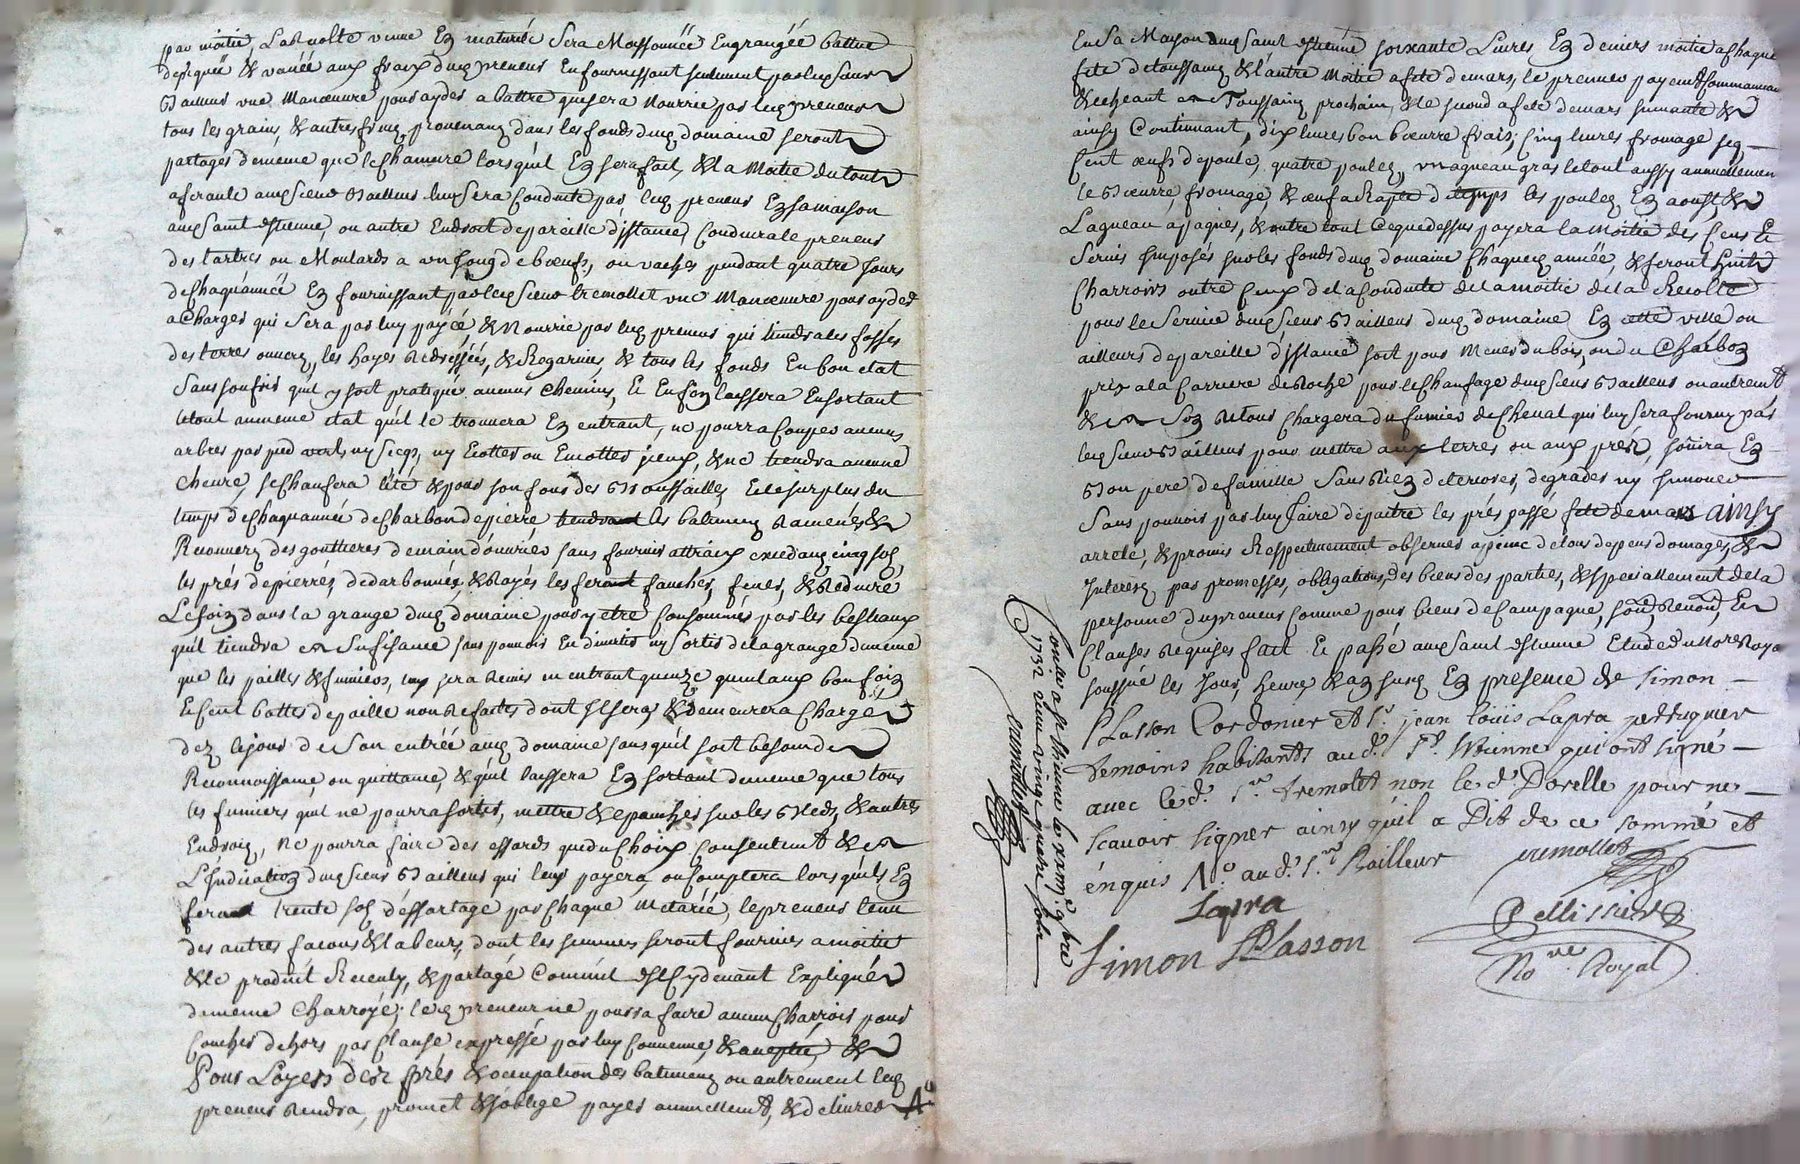 par moitié, La Recolte venue En maturité sera Moissonnéé Engrangéé battue
depiquéé & vanéé aux fraix dud preneur En fournissant seulement par led sieur
Bailleur une Manœuvre pour ayder a battre qui sera Nourrie par led preneur
tous les grains, & autres fruits provenants dans les fonds dud domaine seront
partagés de meme que le Chanvre lors quil En sera fait, & la Moitié du tout
aferante aud sieur Bailleur luy sera Conduite par led preneur En sa maison
aud saint estienne, ou autre Endroit de pareille distance, Conduira le preneur
des tartres ou Moulards a un joug de bœufs, ou vaches pendant quatre jours
de Chaque année En fournissant par led sieur tremollet une Manœuvre pour ayder
a Charger qui sera par luy payéé & Nourrie par led preneur qui tiendra les fossés
des terres ouverts, les hayes Redresséés, & Regarnies, & tous les fonds En bon etat
Sans soufrir quil y soit pratiqué aucuns Chemins, Et Enfin laissera En sortant
le tout au meme etat quil le trouvera En entrant, ne pourra Couper aucuns
arbres par pied verts ny secqs, ny Etotter ou Emotter jceux, & ne tiendra aucune
Chevre, se Chaufera l'été & pour son four des Broussailles Et le surplus du
temps de Chaque année de Charbon de pierre les batiments Ramenés &
Recouverts des gouttieres de main d'ouvrier sans fournir attraix excedants cinq sols
les prés depierrés, & Rayés les fera faucher, fener, & Reduire
Le foin dans la grange dud domaine pour y etre Consommés par les bestiaux
quil tiendra En sufisance sans pouvoir En divertir ny sortir de la grange de meme
que les pailles & fumiers, luy sera Remis en entrant quinze quintaux bon foin
Et Cent bottes de paille non Refaites dont Il sera, & demeurera Chargé
dez le jour de Son entréé aud domaine sans quil soit besoin de
Reconnoissance, ou quittance, & quil laissera En sortant de meme que tous
les fumiers quil ne pourra sortir, mettre & epancher sur les Bleds, & autres
Endroits, Ne pourra faire des essards que du Choix Consentement &
L'Indication dud sieur Bailleur qui leur payera ou Comptera lors quils En
feront trente sols d'essartage par Chaque Metaréé, le preneur tenu
des autres facons & labeurs, dont les semences seront fournies a moitié
& le produit Recenly, & partagé Comm'il est Cy devant Expliqué
de meme Charroyé; led preneur ne pourra faire aucun Charroir pour
Coucher dehors par Clause expressé par luy Convenue, & acceptéé, &
Pour Loyer des prés & occupation des batiments ou autrement led
preneur Rendra, promet & s'oblige payer annuellemt, & delivrer Aº
En Sa Maison aud saint estienne soixante Livres En deniers moitié a Chaque
fete de toussaints & l'autre Moitié a fete de mars, le premier payemt Commancan
& echeant a Toussaints prochain, & le second a fete de mars suivante &
ainsy Continuant, dix livres bon beurre frais, Cinq livres fromage seq
Cent œufs de poule, quatre poulets, un agneau gras le tout aussy annuellemen
le Beurre, fromage, & œufs a Rapte de temps les poulets En aoust, &
L'agneau a paques, & outre tout Ce que dessus payera la Moitié des Cens Et
Servis Imposés sur les fonds dud domaine Chaque année, & feront huit
Charroirs outre Ceux de la Conduite de la moitié de la Recolte
pour le Service dud sieur Bailleur dud domaine En cette ville ou
ailleurs de pareille distance soit pour Mener du bois, ou du Charbon
pris a la Carriere de Roche pour le Chaufage dud sieur Bailleur ou autremt
& En Son Retour Chargera du fumier de Cheval qui luy sera fourny par
led sieur Bailleur pour mettre aux terres ou aux prés, jouira En
Bon pere de famille Sans Rien deteriorer, degrader ny Innover
Sans pouvoir par luy faire depaitre les prés passé fete de mars ainsy
arreté, & promis Respectivement observer a peine de tous depens domages, &
Interets par promesses, obligations, des biens des parties, & specialement de la
personne du preneur Comme pour biens de Campagne, soum. Renon. Et
Clauses Requises fait Et passé aud saint estienne Etude du Nore Roya
soussné les Jour, heure & an susd En presence de Simon
Plasson Cordonier et Sr. jean louis Lapra perruquier
temoins habitants aud. St. Etienne qui ont signé
avec led. Sr. tremolet non led. Dorelle pour ne
scavoir signer ainsy quil a Dit de ce sommé et
enquis Aº aud. Sr. Bailleur
tremollet
Lapra
Pellissier
Simon Plasson
Nore. Royal
Conlé a St. Etienne le 9bre
1732 Reçu vingt quatre sols